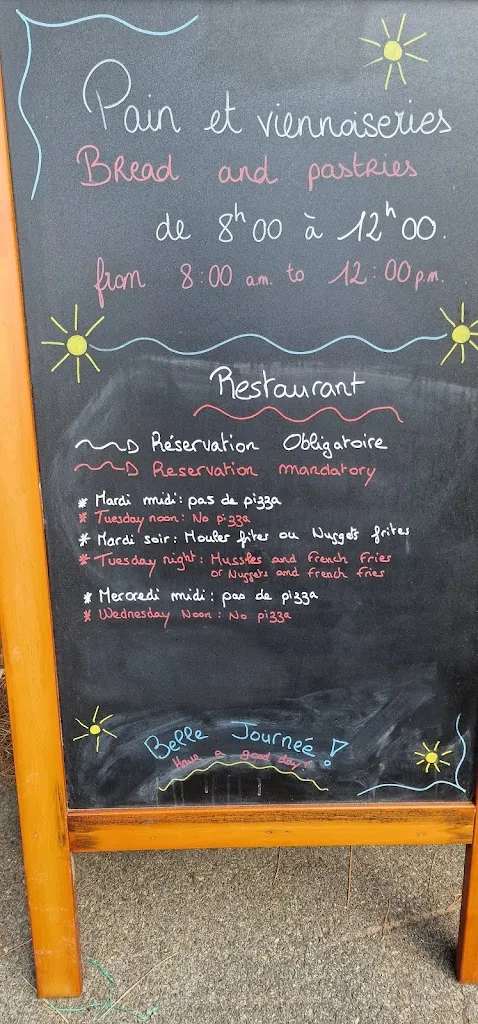 Pain et viennoiseries
Bread and pastries
de 8h00 à 12h00.
from 8:00 a.m. to 12:00 p.m.
Restaurant
Réservation Obligatoire
Reservation mandatory
* Mardi midi: pas de pizza
* Tuesday noon: No pizza
* Mardi soir: Moules frites ou Nuggets frites
* Tuesday night: Mussles and french fries
or Nuggets and french fries
* Mercredi midi: pas de pizza
* Wednesday Noon: No pizza
Belle Journeé!
Have a good day!